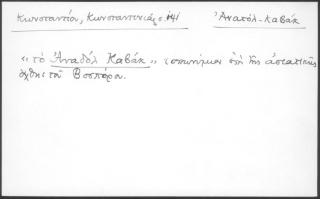 Κωνσταντίου, Κωνσταντινιάς σ. 141 Ἀνατόλ-Καβάκ
"τὸ Ἀναδὸλ Καβάκ" τοπωνύμιον ἐπὶ τῆς ἀσιατικῆς
ὄχθης τοῦ Βοσπόρου.